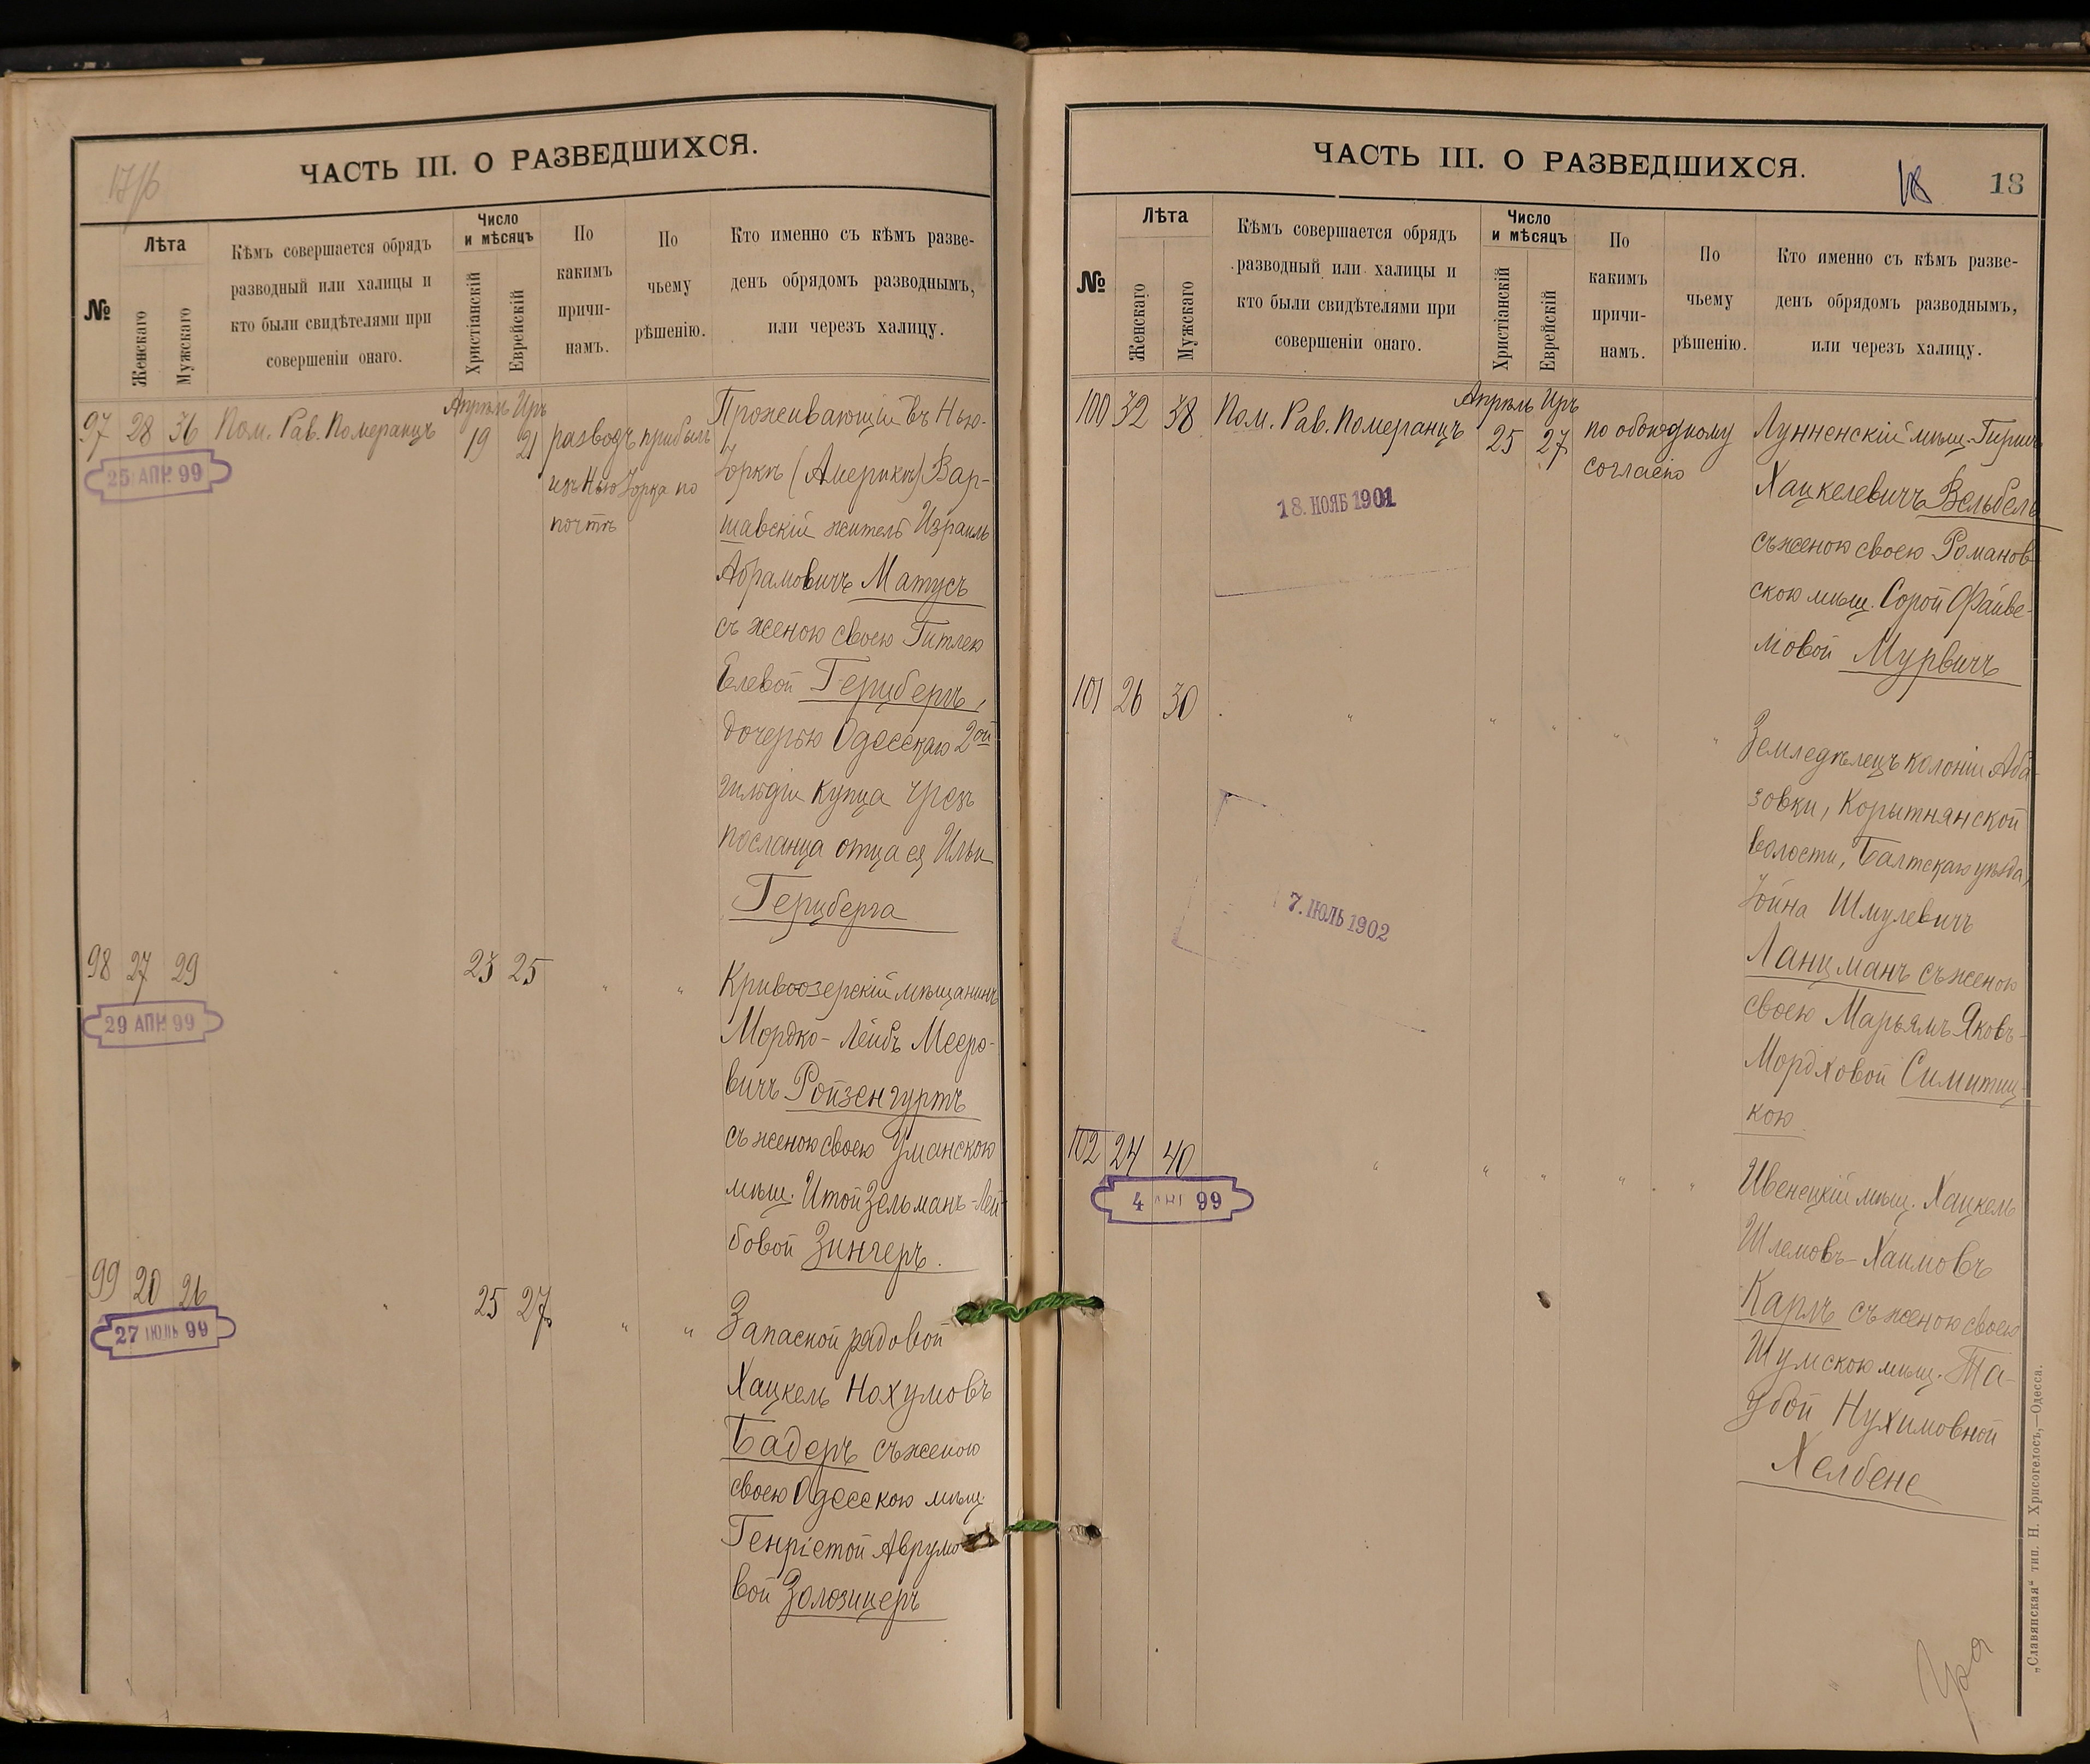 17/б
ЧАСТЬ III. О РАЗВЕДШИХСЯ.
№
Лѣта
Женскаго
Мужскаго
Кѣмъ совершается обрядъ
разводный или халицы и
кто были свидѣтелями при
совершеніи онаго.
Число
и мѣсяцъ
Христіанскій
Еврейскій
По
какимъ
причи-
намъ.
По
чьему
рѣшенію.
Кто именно съ кѣмъ разве-
денъ обрядомъ разводнымъ,
или черезъ халицу.
97 28 36 Пом. Рав. Померанцъ
Апрѣль Иръ
19 21
разводъ прибылъ
изъ Нью Іорка по
почтѣ
25 АПР. 99
Проживающій въ Нью-
Іоркѣ (Америкѣ) Вар-
шавскій житель Израиль
Абрамовичъ Матусъ
съ женою своею Гитлею
Елевой Герцбергъ,
дочерью Одесскаго 2ой
гильдіи купца чрезъ
посланца отца ея Ильи
Герцберга
98 27 29 " 23 25 " "
29 АПР 99
Кривоозерскій мѣщанинъ
Мордко-Лейбъ Мееро-
вичъ Ройзенгуртъ
съ женою своею Уманскою
мѣщ. Итой Зельманъ-Лей-
бовой Зингеръ.
99 20 26 " 25 27 " "
27 ІЮЛЬ 99
Запасной рядовой
Хацкель Нохумовъ
Бадеръ съ женою
своею Одесскою мѣщ.
Генріетой Аврумо-
вой Золозицеръ
ЧАСТЬ III. О РАЗВЕДШИХСЯ.
18
18
№
Лѣта
Женскаго
Мужскаго
Кѣмъ совершается обрядъ
разводный или халицы и
кто были свидѣтелями при
совершеніи онаго.
Число
и мѣсяцъ
Христіанскій
Еврейскій
По
какимъ
причи-
намъ.
По
чьему
рѣшенію.
Кто именно съ кѣмъ разве-
денъ обрядомъ разводнымъ,
или черезъ халицу.
100 32 38 Пом. Рав. Померанцъ
Апрѣль Иръ
25 27
по обоюдному
согласію
18. НОЯБ 1901
Лунненскій мѣщ. Гирш
Хацкелевичъ Вельбель
съ женою своею Романов-
скою мѣщ. Сорой Файве-
ліовой Мурвичъ
101 26 30 " " " " "
7. ІЮЛЬ 1902
Земледѣлецъ колоніи Аба-
зовки, Корытнянской
волости, Балтскаго уѣзда,
Іойна Шмулевичъ
Ланцманъ съ женою
своею Марьямъ Яковъ-
Мордховой Симитиц
кою.
102 24 40 " " " " "
4 99
Ивенецкій мѣщ. Хацкель
Шлемовъ-Хаимовъ
Карпъ съ женою своею
Шумскою мѣщ. Та-
убой Нухимовной
Хелбене
„Славянская“ тип. Н. Хрисогелосъ,—Одесса.